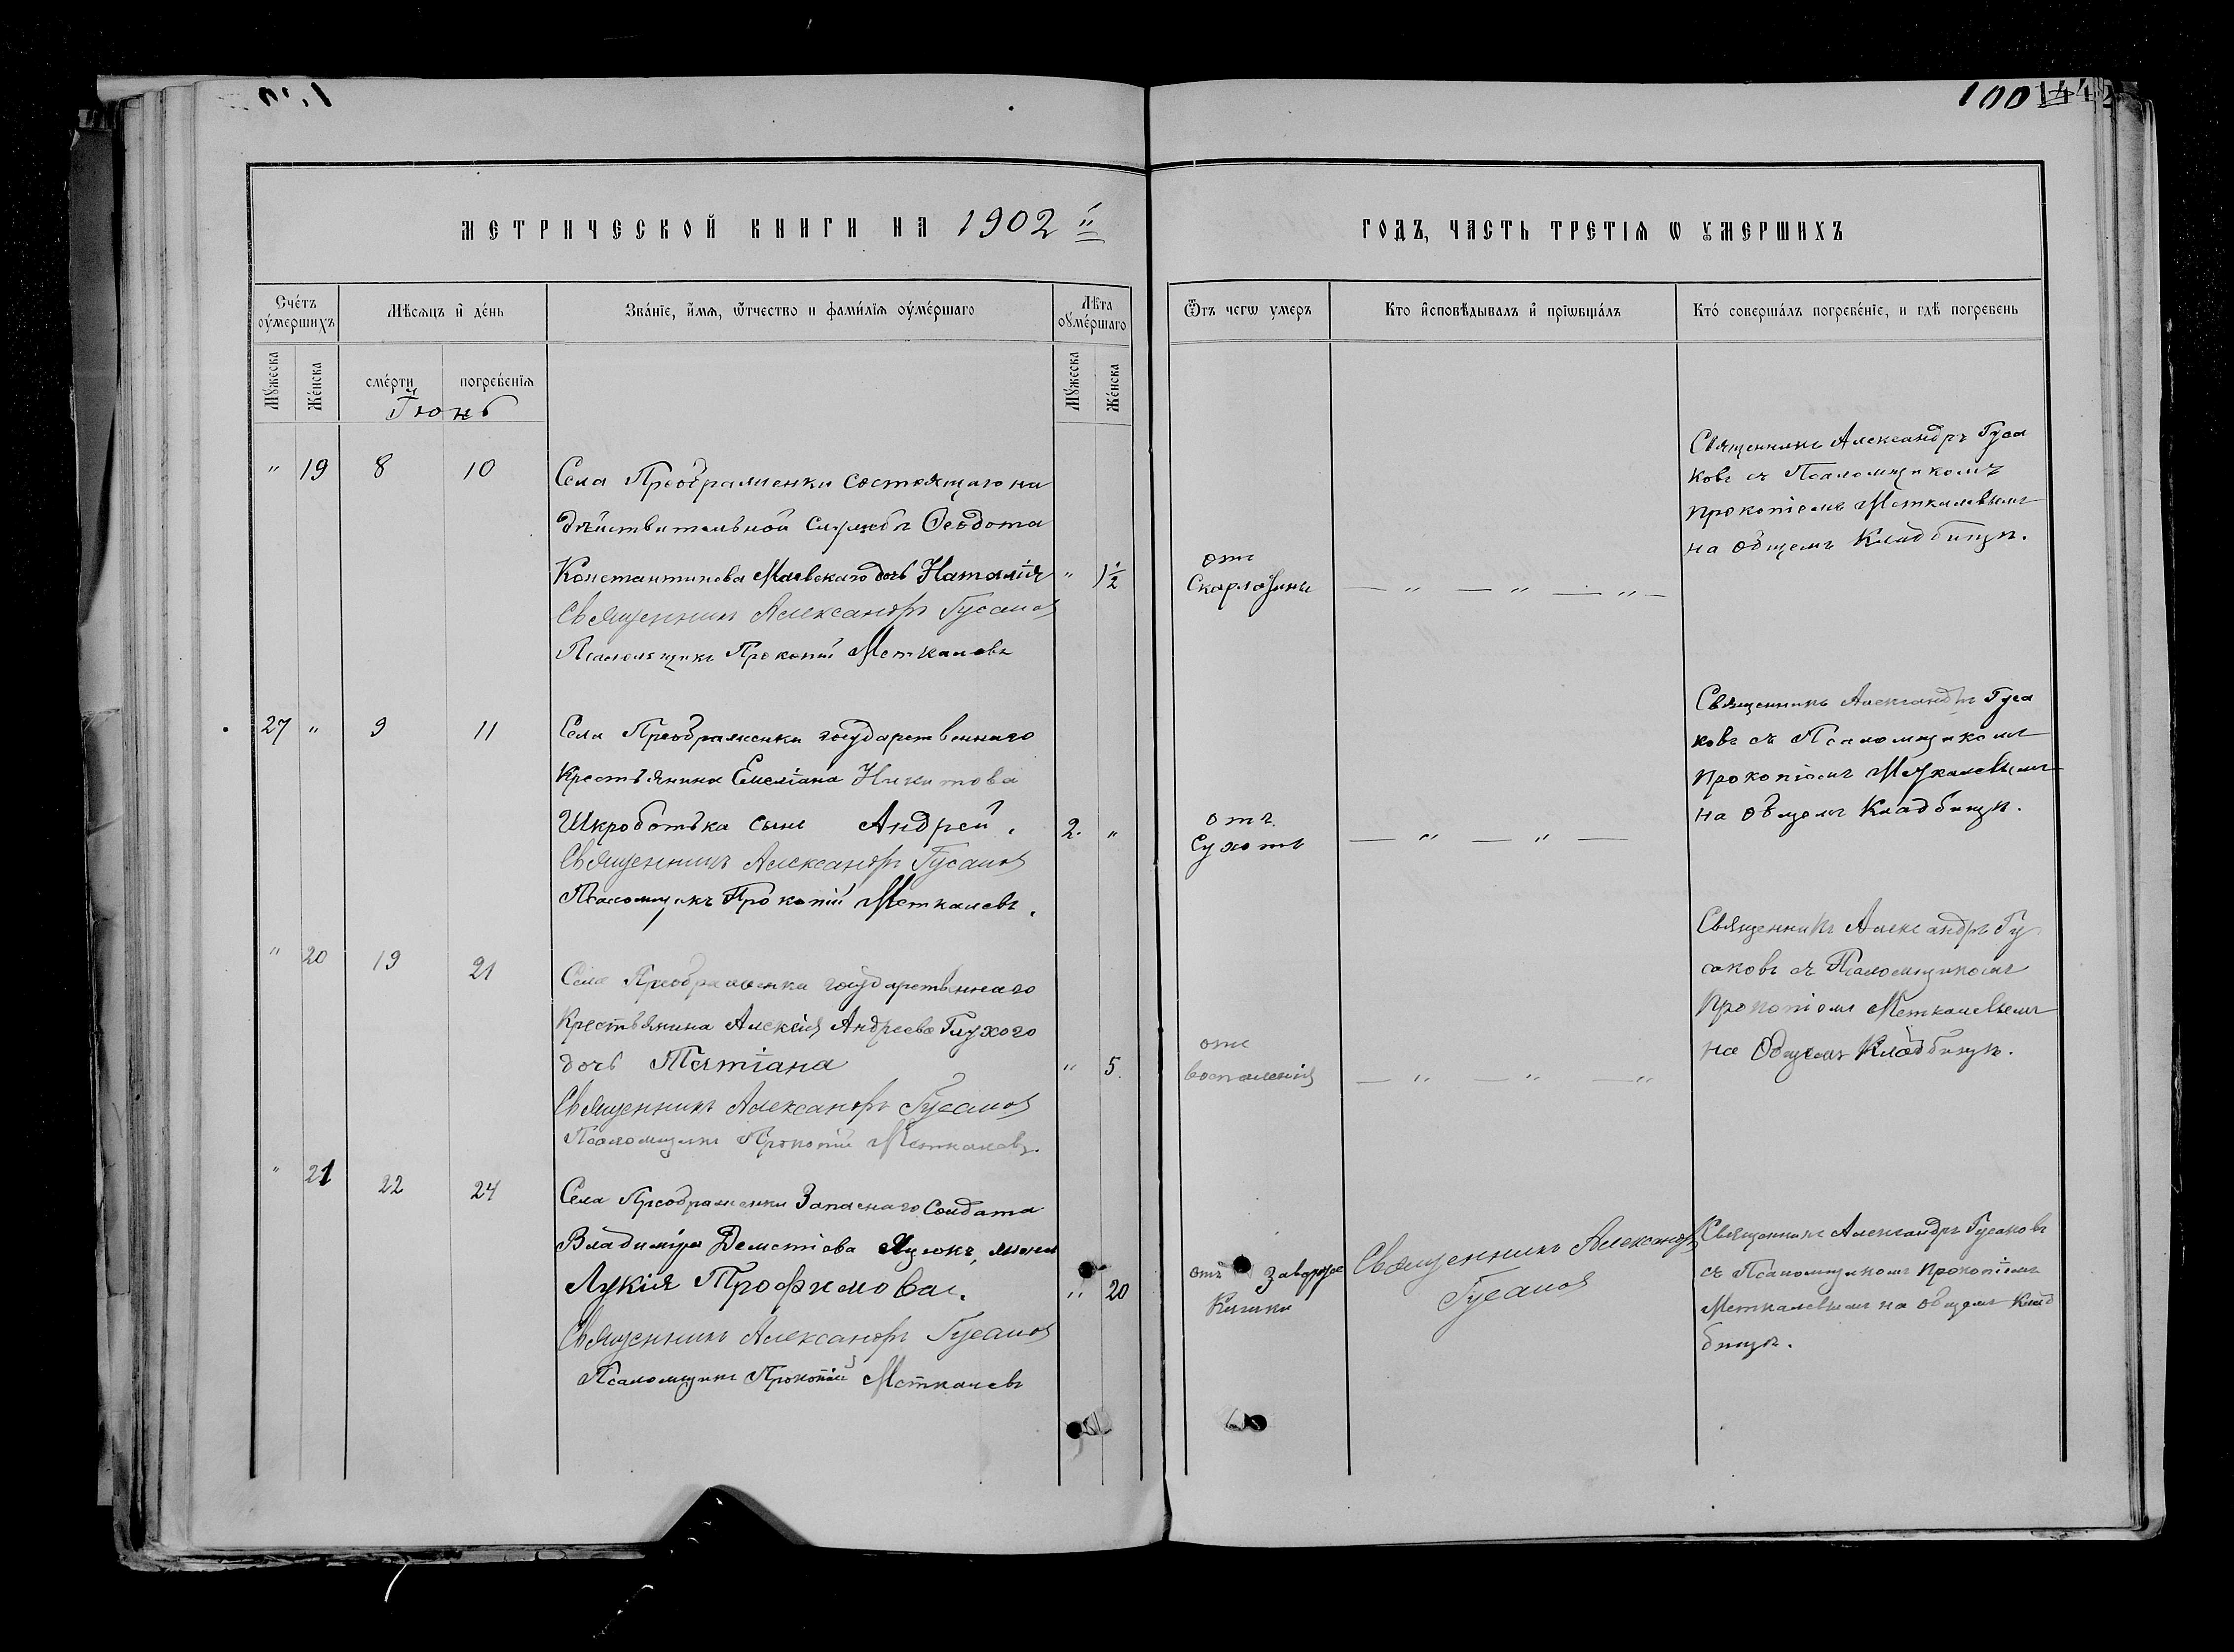 100 144
МЕТРИЧЕСКОЙ КНИГИ НА 1902 й
ГОДЪ, ЧАСТЬ ТРЕТІЯ Ѡ ОУМЕРШИХЪ
Счетъ оумершихъ
Мѣсяцъ и день
Званіе, имя, ѿтчество и фамилія оумершаго
Лѣта оумершаго
Ѿтъ чегѡ умеръ
Кто исповѣдывалъ и пріѡбщалъ
Кто совершалъ погребеніе, и гдѣ погребенъ
Мужеска
Женска
смерти
погребенія
Мужеска
Женска
Іюнь
" 19 8 10
Села Преображенки состоящаго на
дѣйствительной службѣ Ѳеодота
Константинова Маевскаго дочь Наталія
" 1½
Священникъ Александръ Гусаковъ
Псаломщикъ Прокопій Меткалевъ
отъ
Скарлатины
— " — " — " —
Священникъ Александръ Гуса
ковъ съ Псаломщикомъ
Прокопіемъ Меткалевымъ
на общемъ Кладбищѣ.
27 " 9 11
Села Преображенки государственнаго
Крестьянина Емеліана Никитова
Шкроботька сынъ Андрей.
2. "
Священникъ Александръ Гусаковъ
Псаломщикъ Прокопій Меткалевъ.
отъ
Сухотъ
— " — " —
Священникъ Александръ Гуса
ковъ съ Псаломщикомъ
Прокопіемъ Меткалевымъ
на общемъ Кладбищѣ.
" 20 19 21
Села Преображенки государственнаго
Крестьянина Алексія Андреева Глухого
дочь Татіана
" 5.
Священникъ Александръ Гусаковъ
Псаломщикъ Прокопій Меткалевъ.
отъ
воспаленія
— " — " — "
Священникъ Александръ Гу
саковъ съ Псаломщикомъ
Прокопіемъ Меткалевымъ
на Общемъ Кладбищѣ.
" 21 22 24
Села Преображенки Запаснаго Солдата
Владиміра Дементіева жена
Лукія Трофимова.
" 20
Священникъ Александръ Гусаковъ
Псаломщикъ Прокопій Меткалевъ
отъ
Кишки
Священникъ Александръ
Гусаковъ
Священникъ Александръ Гусаковъ
съ Псаломщикомъ Прокопіемъ
Меткалевымъ на общемъ Клад
бищѣ.